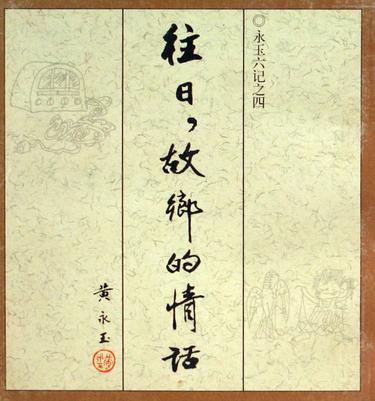 ◎永玉六记之四
往日，故鄉的情话
黄永玉